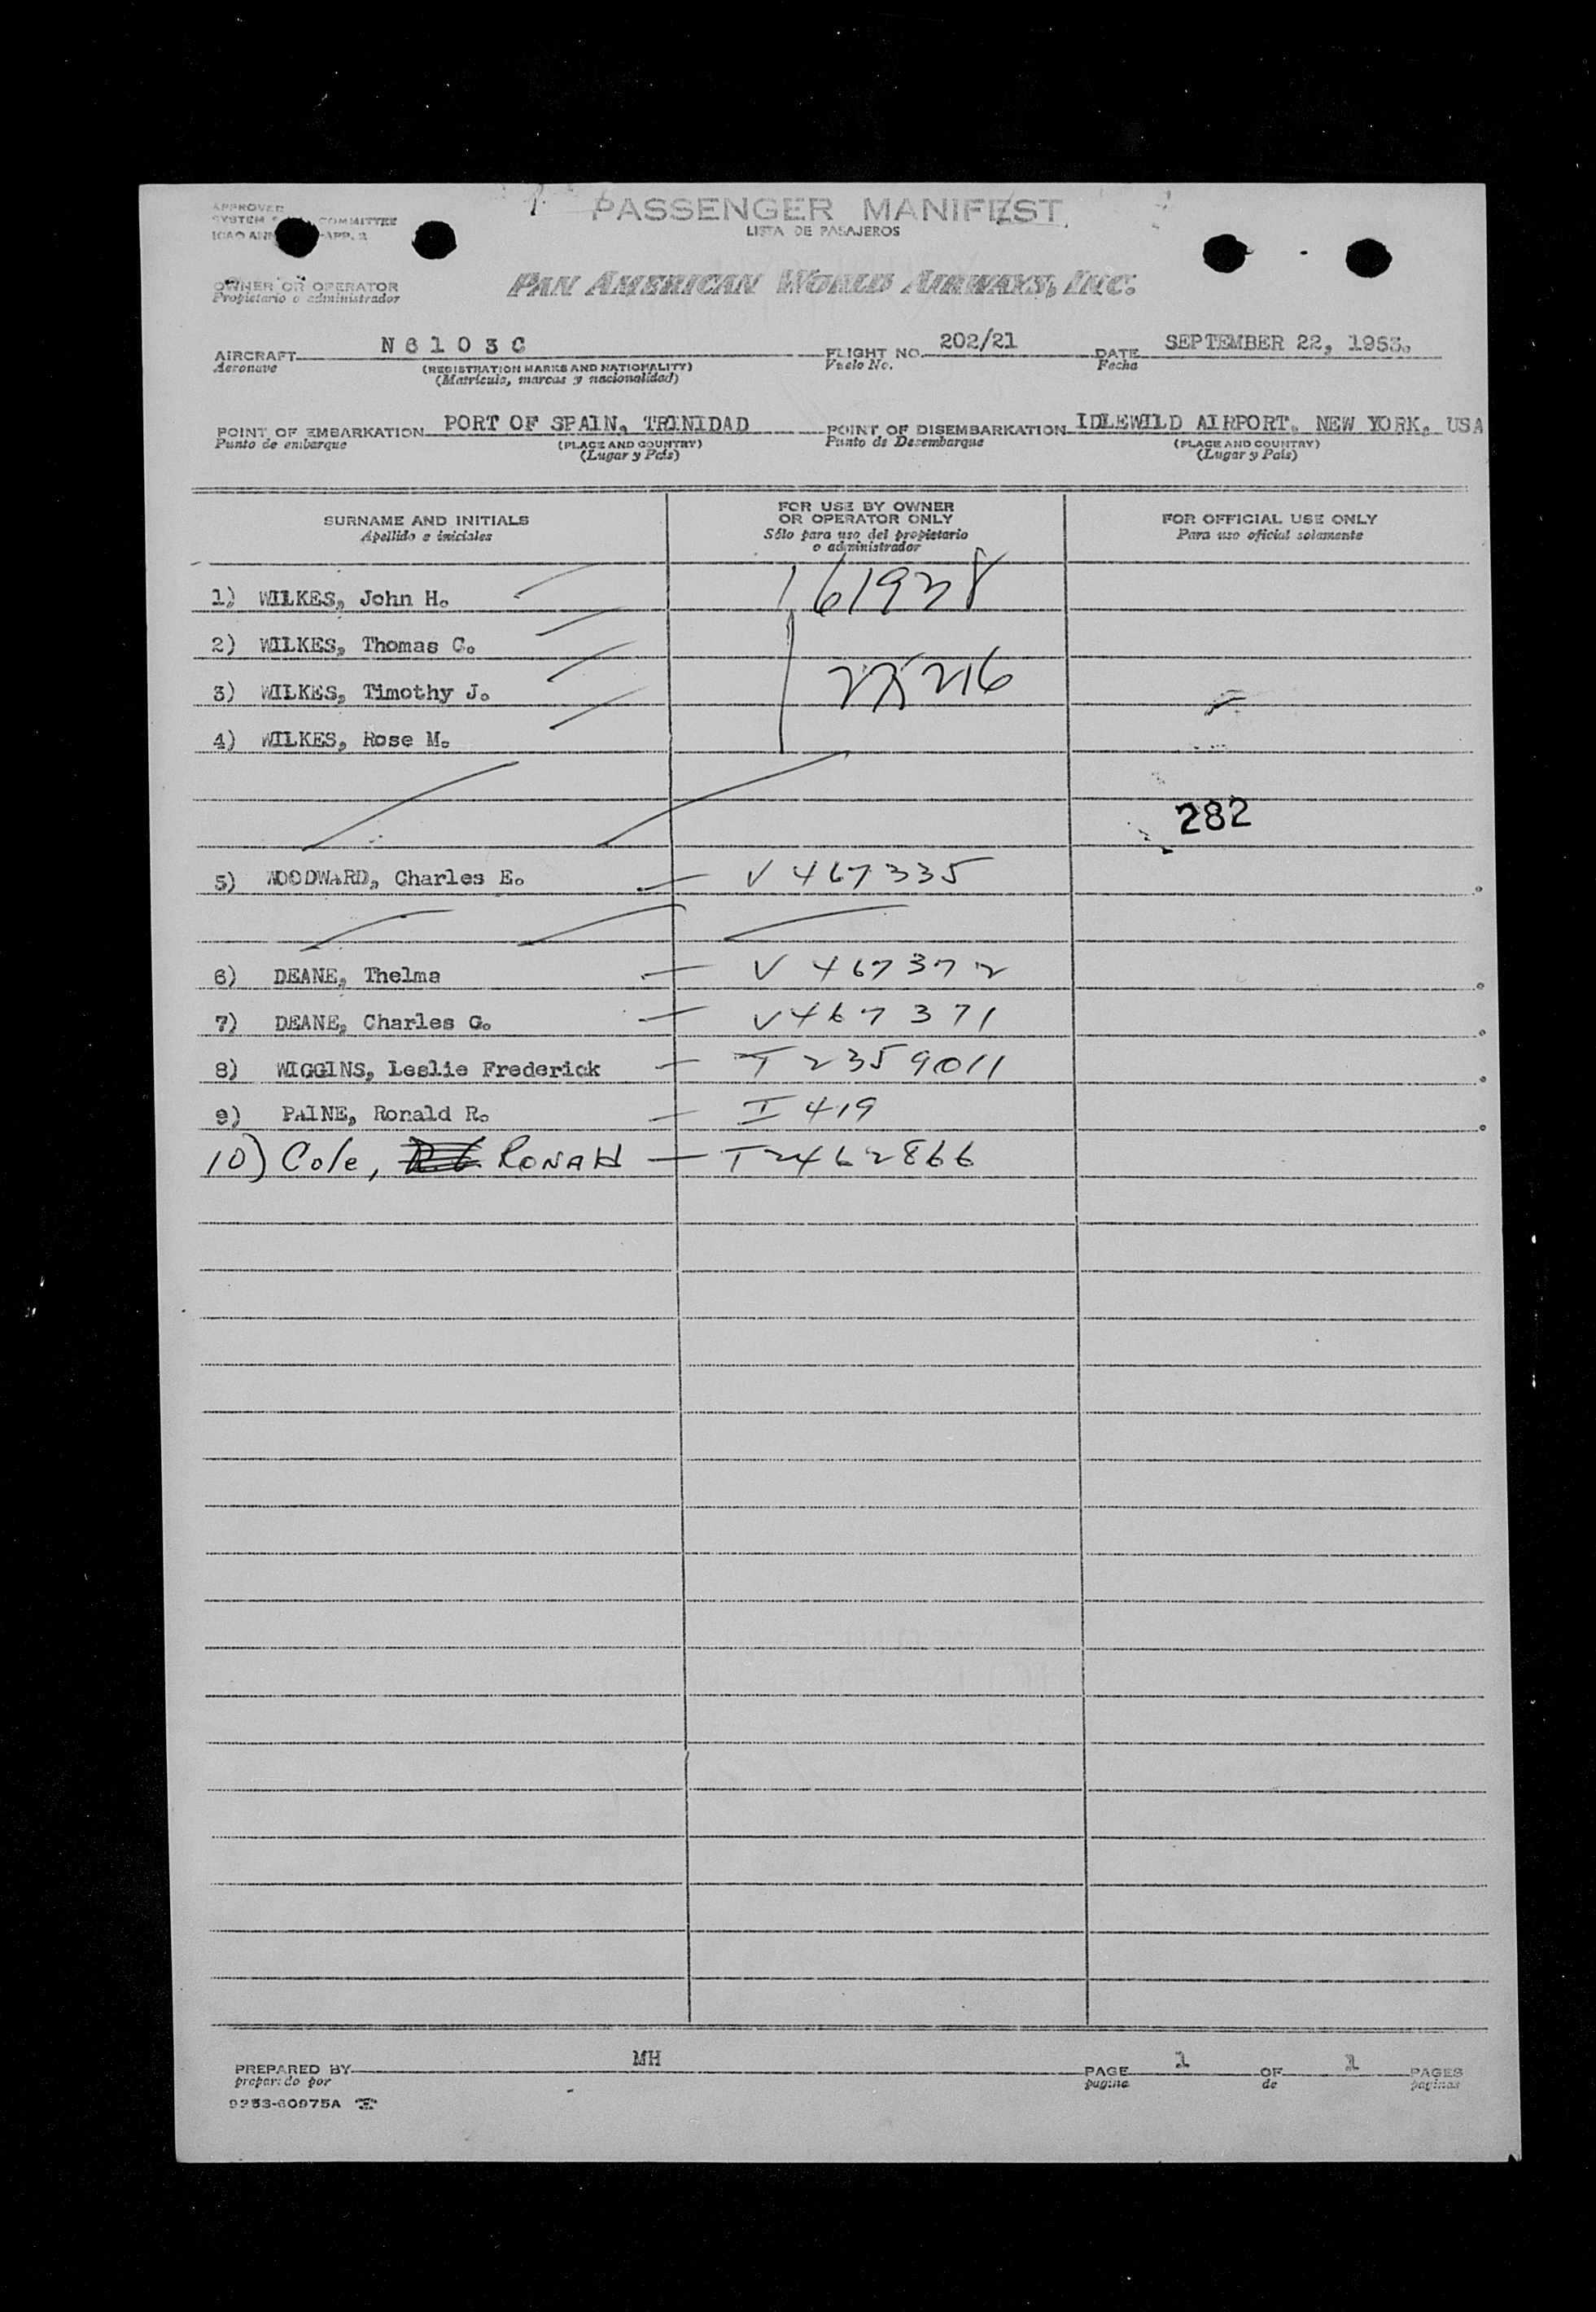 APPROVED
PASSENGER MANIFEST
SYSTEM COMMITTEE
LISTA DE PASAJEROS
ICAO ANN APP. 2
OWNER OR OPERATOR
Propietario o administrador
PAN AMERICAN WORLD AIRWAYS, INC.
AIRCRAFT N 6 1 0 3 C FLIGHT NO. 202/21 DATE SEPTEMBER 22, 1953.
Aeronave (REGISTRATION MARKS AND NATIONALITY) Vuelo No. Fecha
(Matrícula, marcas y nacionalidad)
POINT OF EMBARKATION PORT OF SPAIN, TRINIDAD POINT OF DISEMBARKATION IDLEWILD AIRPORT. NEW YORK, USA
Punto de embarque (PLACE AND COUNTRY) Punto de Desembarque (PLACE AND COUNTRY)
(Lugar y País) (Lugar y País)
SURNAME AND INITIALS
Apellido e iniciales
FOR USE BY OWNER
OR OPERATOR ONLY
Sólo para uso del propietario
o administrador
FOR OFFICIAL USE ONLY
Para uso oficial solamente
1) WILKES, John H. 161938
2) WILKES, Thomas C.
3) WILKES, Timothy J. 216
4) WILKES, Rose M.
282
5) WOODWARD, Charles E. V 467335
6) DEANE, Thelma V 467372
7) DEANE, Charles G. V 467371
8) WIGGINS, Leslie Frederick T 2359011
9) PAINE, Ronald R. I 419
10) Cole, RONALD T 2462866
PREPARED BY MH PAGE 1 OF 1 PAGES
preparado por pagina de paginas
9253-60975A